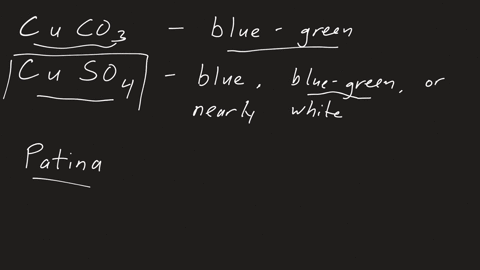 CuCO₃ - blue-green
CuSO₄ - blue, blue-green, or
nearly white
Patina